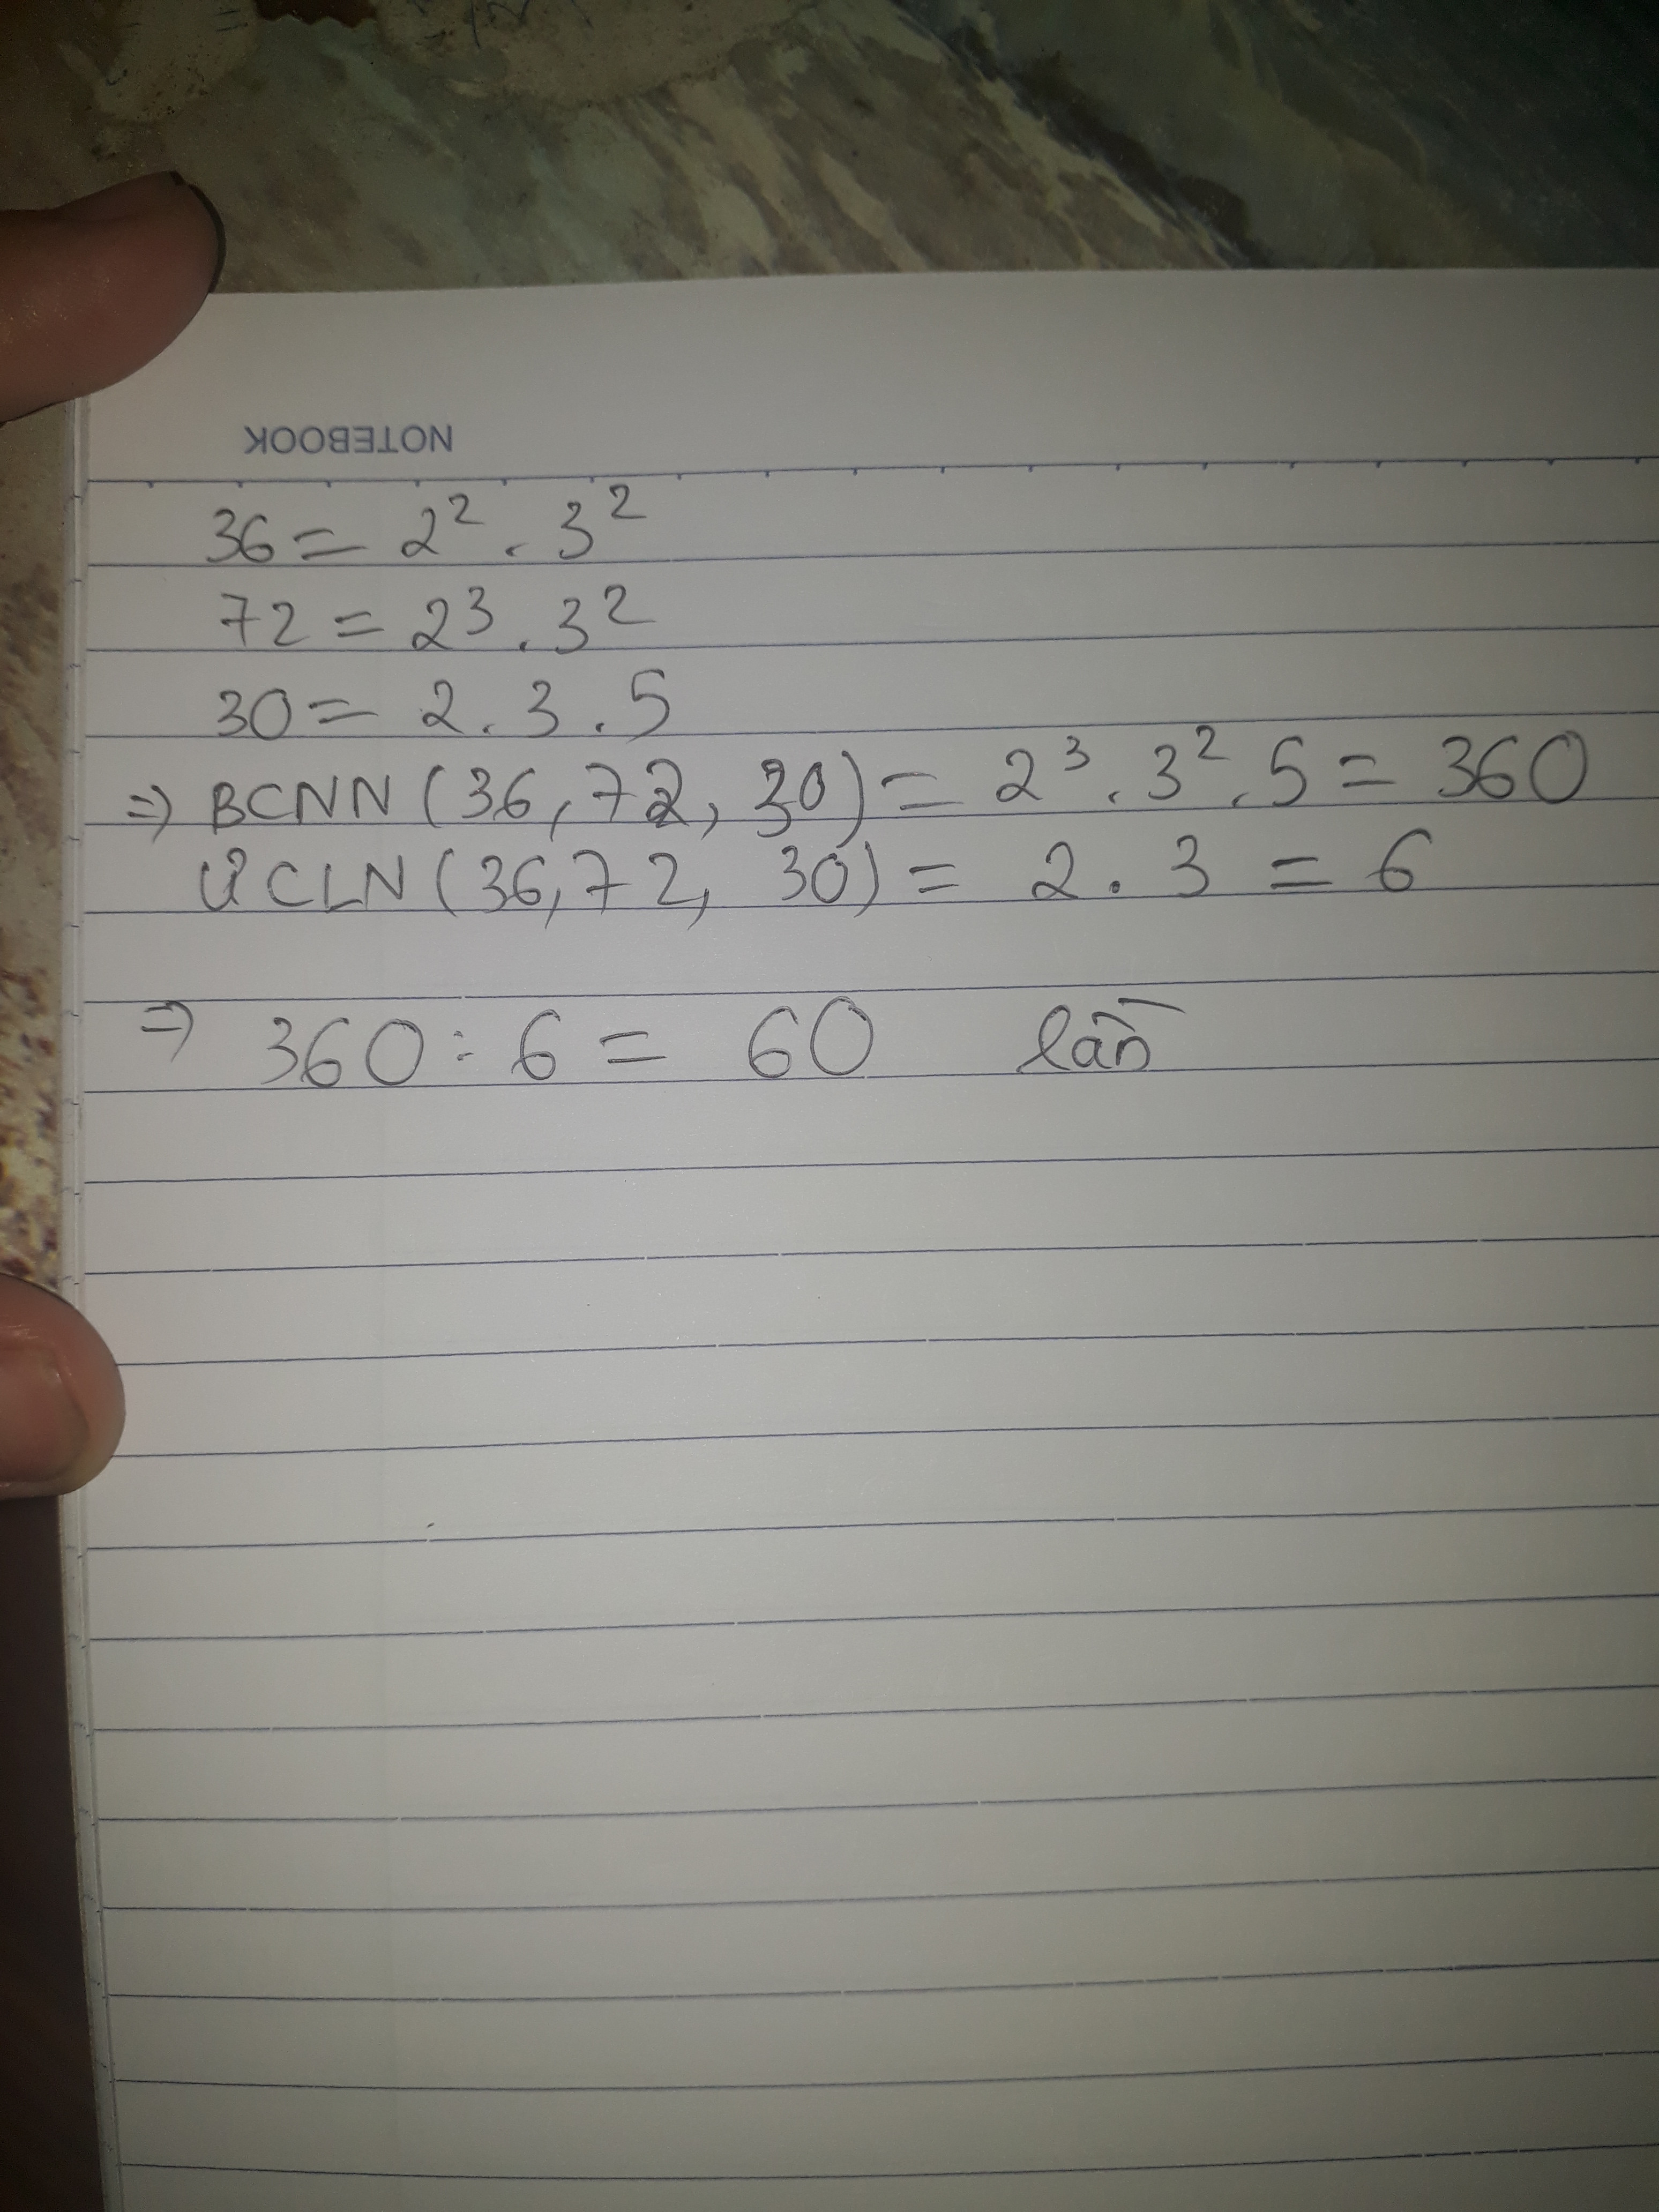 NOTEBOOK
36 = 2² . 3²
72 = 2³ . 3²
30 = 2 . 3 . 5
=> BCNN (36, 72, 30) = 2³ . 3² . 5 = 360
ƯCLN (36, 72, 30) = 2 . 3 = 6
=> 360 : 6 = 60 lần